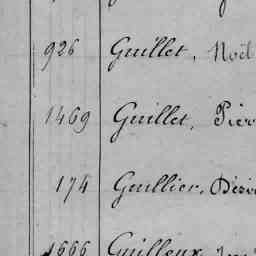 926 Guillet, Noël
1469 Guillet, Pier
174 Guillier, Dési
1666 Guilleux